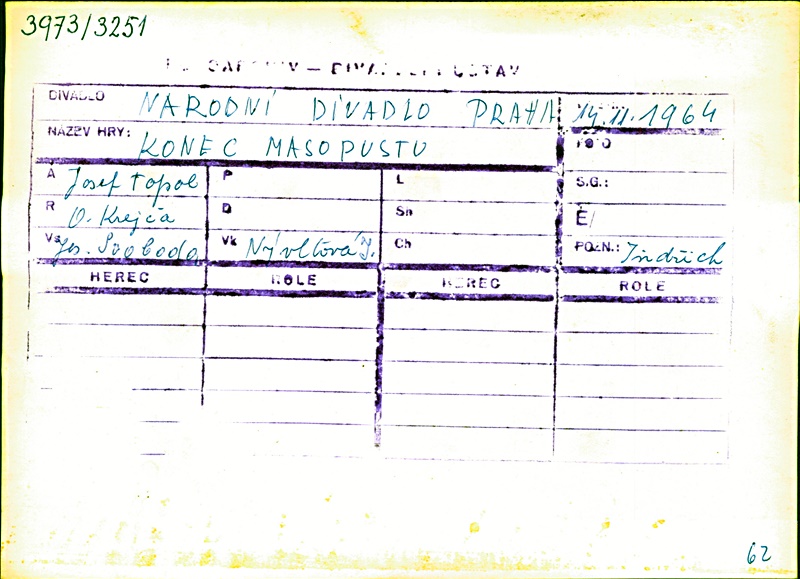 3973/3251
– DIVADELNÍ ÚSTAV
DIVADLO NÁRODNÍ DIVADLO PRAHA 14.11.1964
NÁZEV HRY: KONEC MASOPUSTU FOTO
A Josef Topol P L S.G.:
R O. Krejča D Sn Č/
Vs Jos. Svoboda Vk Nývltová J. Ch POZN.: Jindřich
HEREC ROLE HEREC ROLE
62